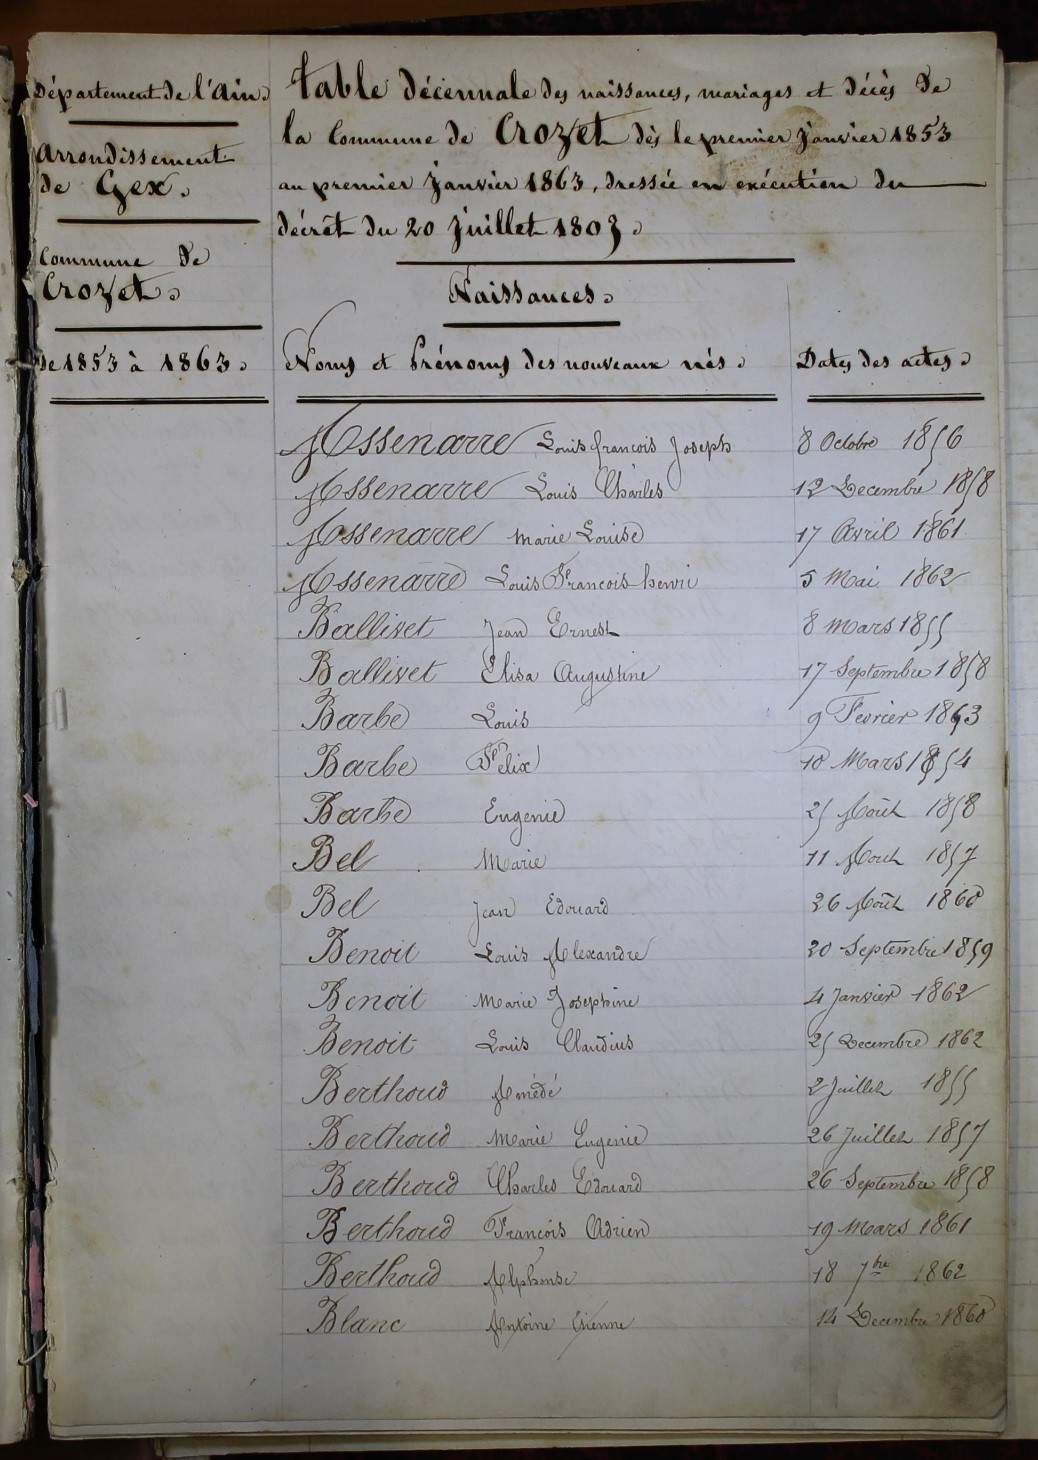 Département de l'Ain.
Arrondissement
de Gex.
Commune de
Crozet.
De 1853 à 1863.
Table décennale des naissances, mariages et décès de
la Commune de Crozet dès le premier Janvier 1853
au premier Janvier 1863, dressée en exécution du
décret du 20 Juillet 1807.
Naissances.
Noms et Prénoms des nouveaux nés. Dates des actes.
Assenarre Louis françois Joseph 8 Octobre 1856
Assenarre Louis Charles 12 Decembre 1858
Assenarre Marie Louise 17 Avril 1861
Assenarre Louis François henri 5 Mai 1862
Ballivet Jean Ernest 8 Mars 1855
Ballivet Elisa Augustine 17 Septembre 1858
Barbe Louis 9 Fevrier 1853
Barbe Félix 10 Mars 1854
Barbe Eugenie 25 Août 1858
Bel Marie 11 Aout 1857
Bel Jean Edouard 26 Août 1860
Benoit Louis Alexandre 20 Septembre 1859
Benoit Marie Josephine 4 Janvier 1862
Benoit Louis Claudius 25 Decembre 1862
Berthoud Amédé 2 Juillet 1855
Berthoud Marie Eugenie 26 Juillet 1857
Berthoud Charles Edouard 26 Septembre 1858
Berthoud François Adrien 19 Mars 1861
Berthoud Alphonse 18 7bre 1862
Blanc Antoine Etienne 14 Decembre 1860